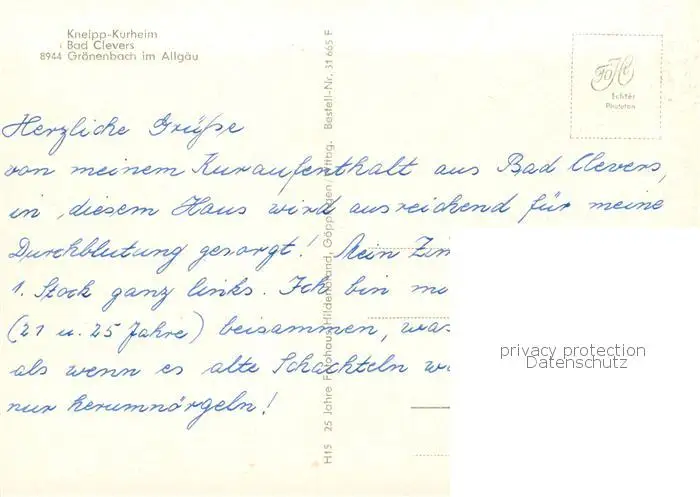 Kneipp-Kurheim
Bad Clevers
8944 Grönenbach im Allgäu
FoHi
Echtes
Phototon
Herzliche Grüße
von meinem Kuraufenthalt aus Bad Clevers,
in diesem Haus wird ausreichend für meine
Durchblutung gesorgt! Mein Zim
1. Stock ganz links. Ich bin m
(21 u. 25 Jahre) beisammen, was
als wenn es alte Schachteln w
nur herumnörgeln!
H15 25 Jahre Fotohaus Hildenbrand, Göppingen/Wttbg. Bestell-Nr. 31 665 F
privacy protection
Datenschutz